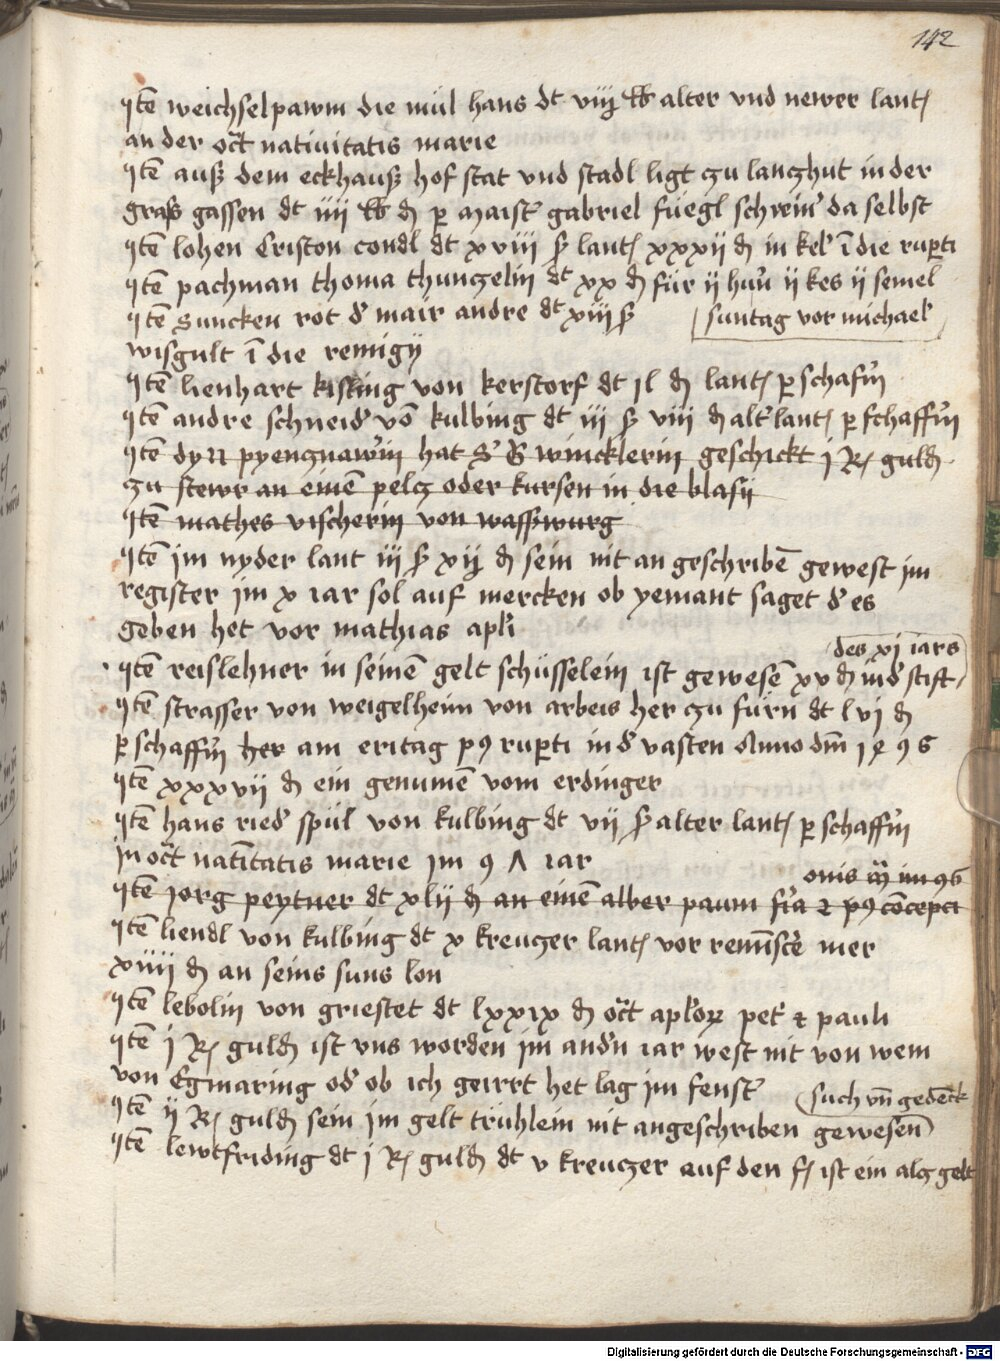 142
Jtē weichselpawm die mül hans dt viij lb alter vnd newer lantß
an der oct̄ natiuitatis marie
Jtē auß dem eckhauß hof stat vnd stadl ligt zu lanczhut in der
graß gassen dt iiij lb ₰ p maist' gabriel füegl schrein' da selbst
Jtē lohen Criston condl dt xviii ß lantß xxxij ₰ in kel' ī die rup̄ti
Jtē pachman thoma thunzelin dt xx ₰ für ij hün' ij kes ij semel
Jtē Suncken rot d' mair andre dt xiiij ß suntag vor michael'
wisgult ī die remigij
Jtē lienhart kisling von kerstorf dt jl ₰ lantß p schafr̄in
Jtē andre schneid' vō kulbing dt iii ß viii ₰ alt' lantß p schaffr̄in
Jtē pyenznawr̄in hat wincklerin geschickt j Rß guld₰
zu stewr an einē pelcz oder kursen in die blasij
Jtē mathes vischerin von wasserwurg
Jtē im nyder lant iij ß xij ₰ sein nit an geschribē gewest im
register im x iar sol auf mercken ob yemant saget d' es
geben het vor mathias apl'i
des xj iars
Jtē reislehner in seinē gelt schüsselein ist gewesē xv ₰ in d' stift
Jtē strasser von weigelheim von arbeis her zu fürn dt lvj ₰
p schaffr̄in her am eritag p9 rup̄ti in d' vasten Anno dm̄ 1496
Jtē xxxvii ₰ ein genumē vom erdinger
Jtē hans ried' spül von kulbing dt vij ß alter lantß p schaffr̄in
in oct̄ natī̄tatis marie im 9Λ iar
onis im 96
Jtē jorg peytner dt xlij ₰ an einē alber paum fr̄ia 2 p9 cōcepci
Jtē liendl von kulbing dt x kreuczer lantß vor remīscē mer
xiiij ₰ an seins suns lon
Jtē lebolin von griestet dt lxxix ₰ oct̄ apl'oꝝ pet' ⁊ pauli
Jtē j Rß guld₰ ist vns worden im and'n iar west nit von wem
von Egmaring od' ob ich geirrt het lag im fenst'
such vn̄ gedēck
Jtē ij Rß guld₰ sein im gelt trühlein nit angeschriben gewesen
Jtē lewtfriding dt j Rß guld₰ dt v kreuczer auf den fß ist ein alcz gelt
Digitalisierung gefördert durch die Deutsche Forschungsgemeinschaft - DFG